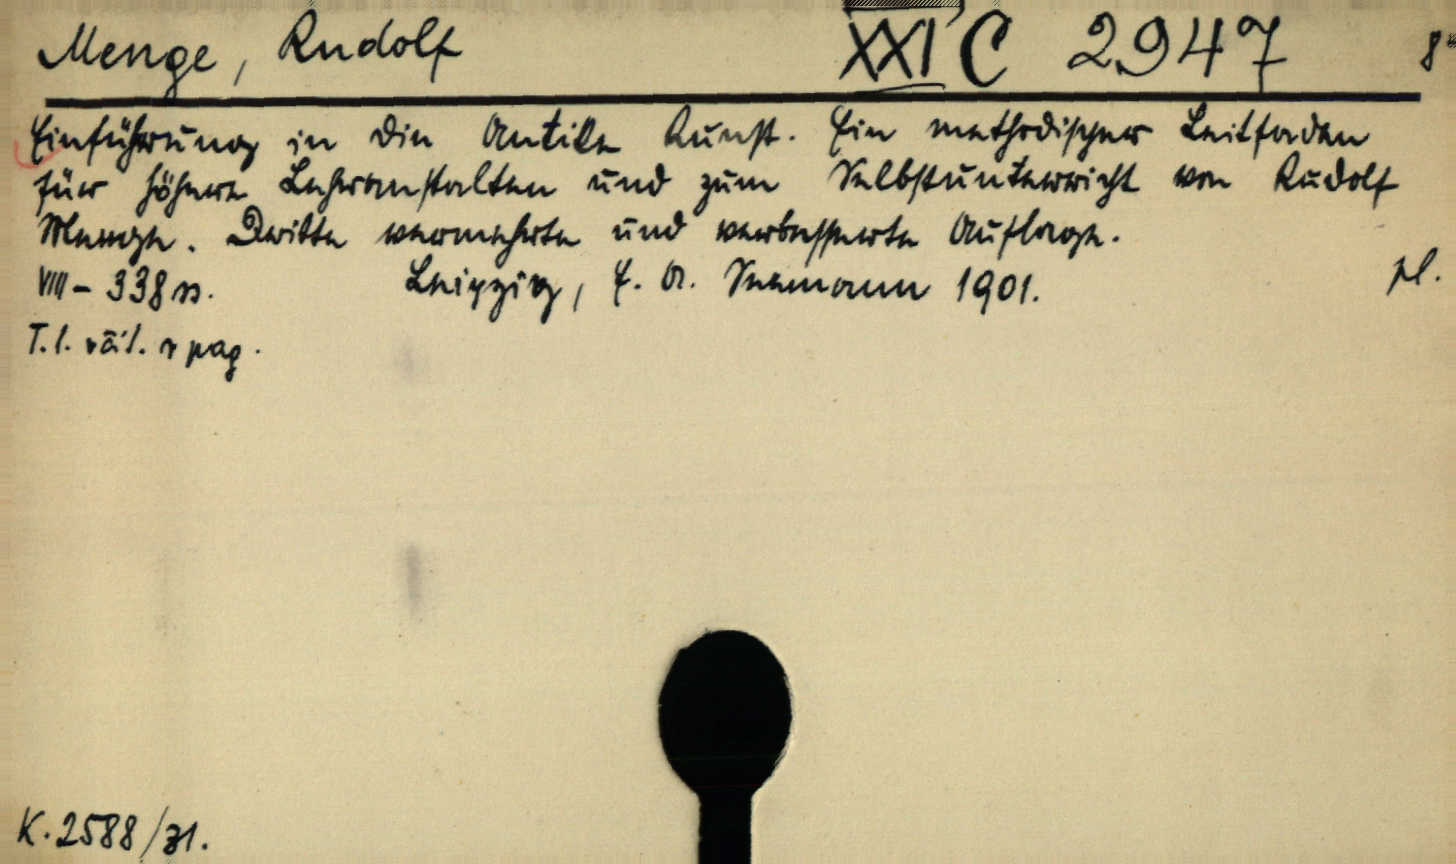 Menge, Rudolf XXI C 2947 8°
Einführung in die Antike Kunst. Ein methodischer Leitfaden
für höhere Lehranstalten und zum Selbstunterricht von Rudolf
Menge. Dritte vermehrte und verbesserte Auflage.
VIII - 338 ss. Leipzig, E. A. Seemann 1901. pl.
T. l. răil. n pag.
K. 2588/31.